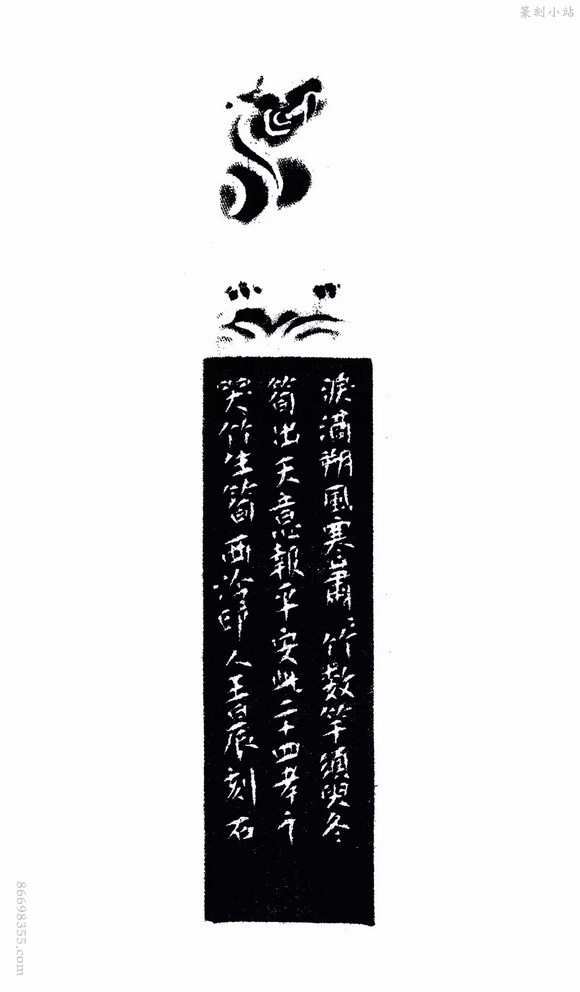 篆刻小站
淚滴朔風寒蕭〻竹數竿須臾冬
筍出天意報平安此二十四孝之
哭竹生筍西泠印人王晨刻石
86698355.com